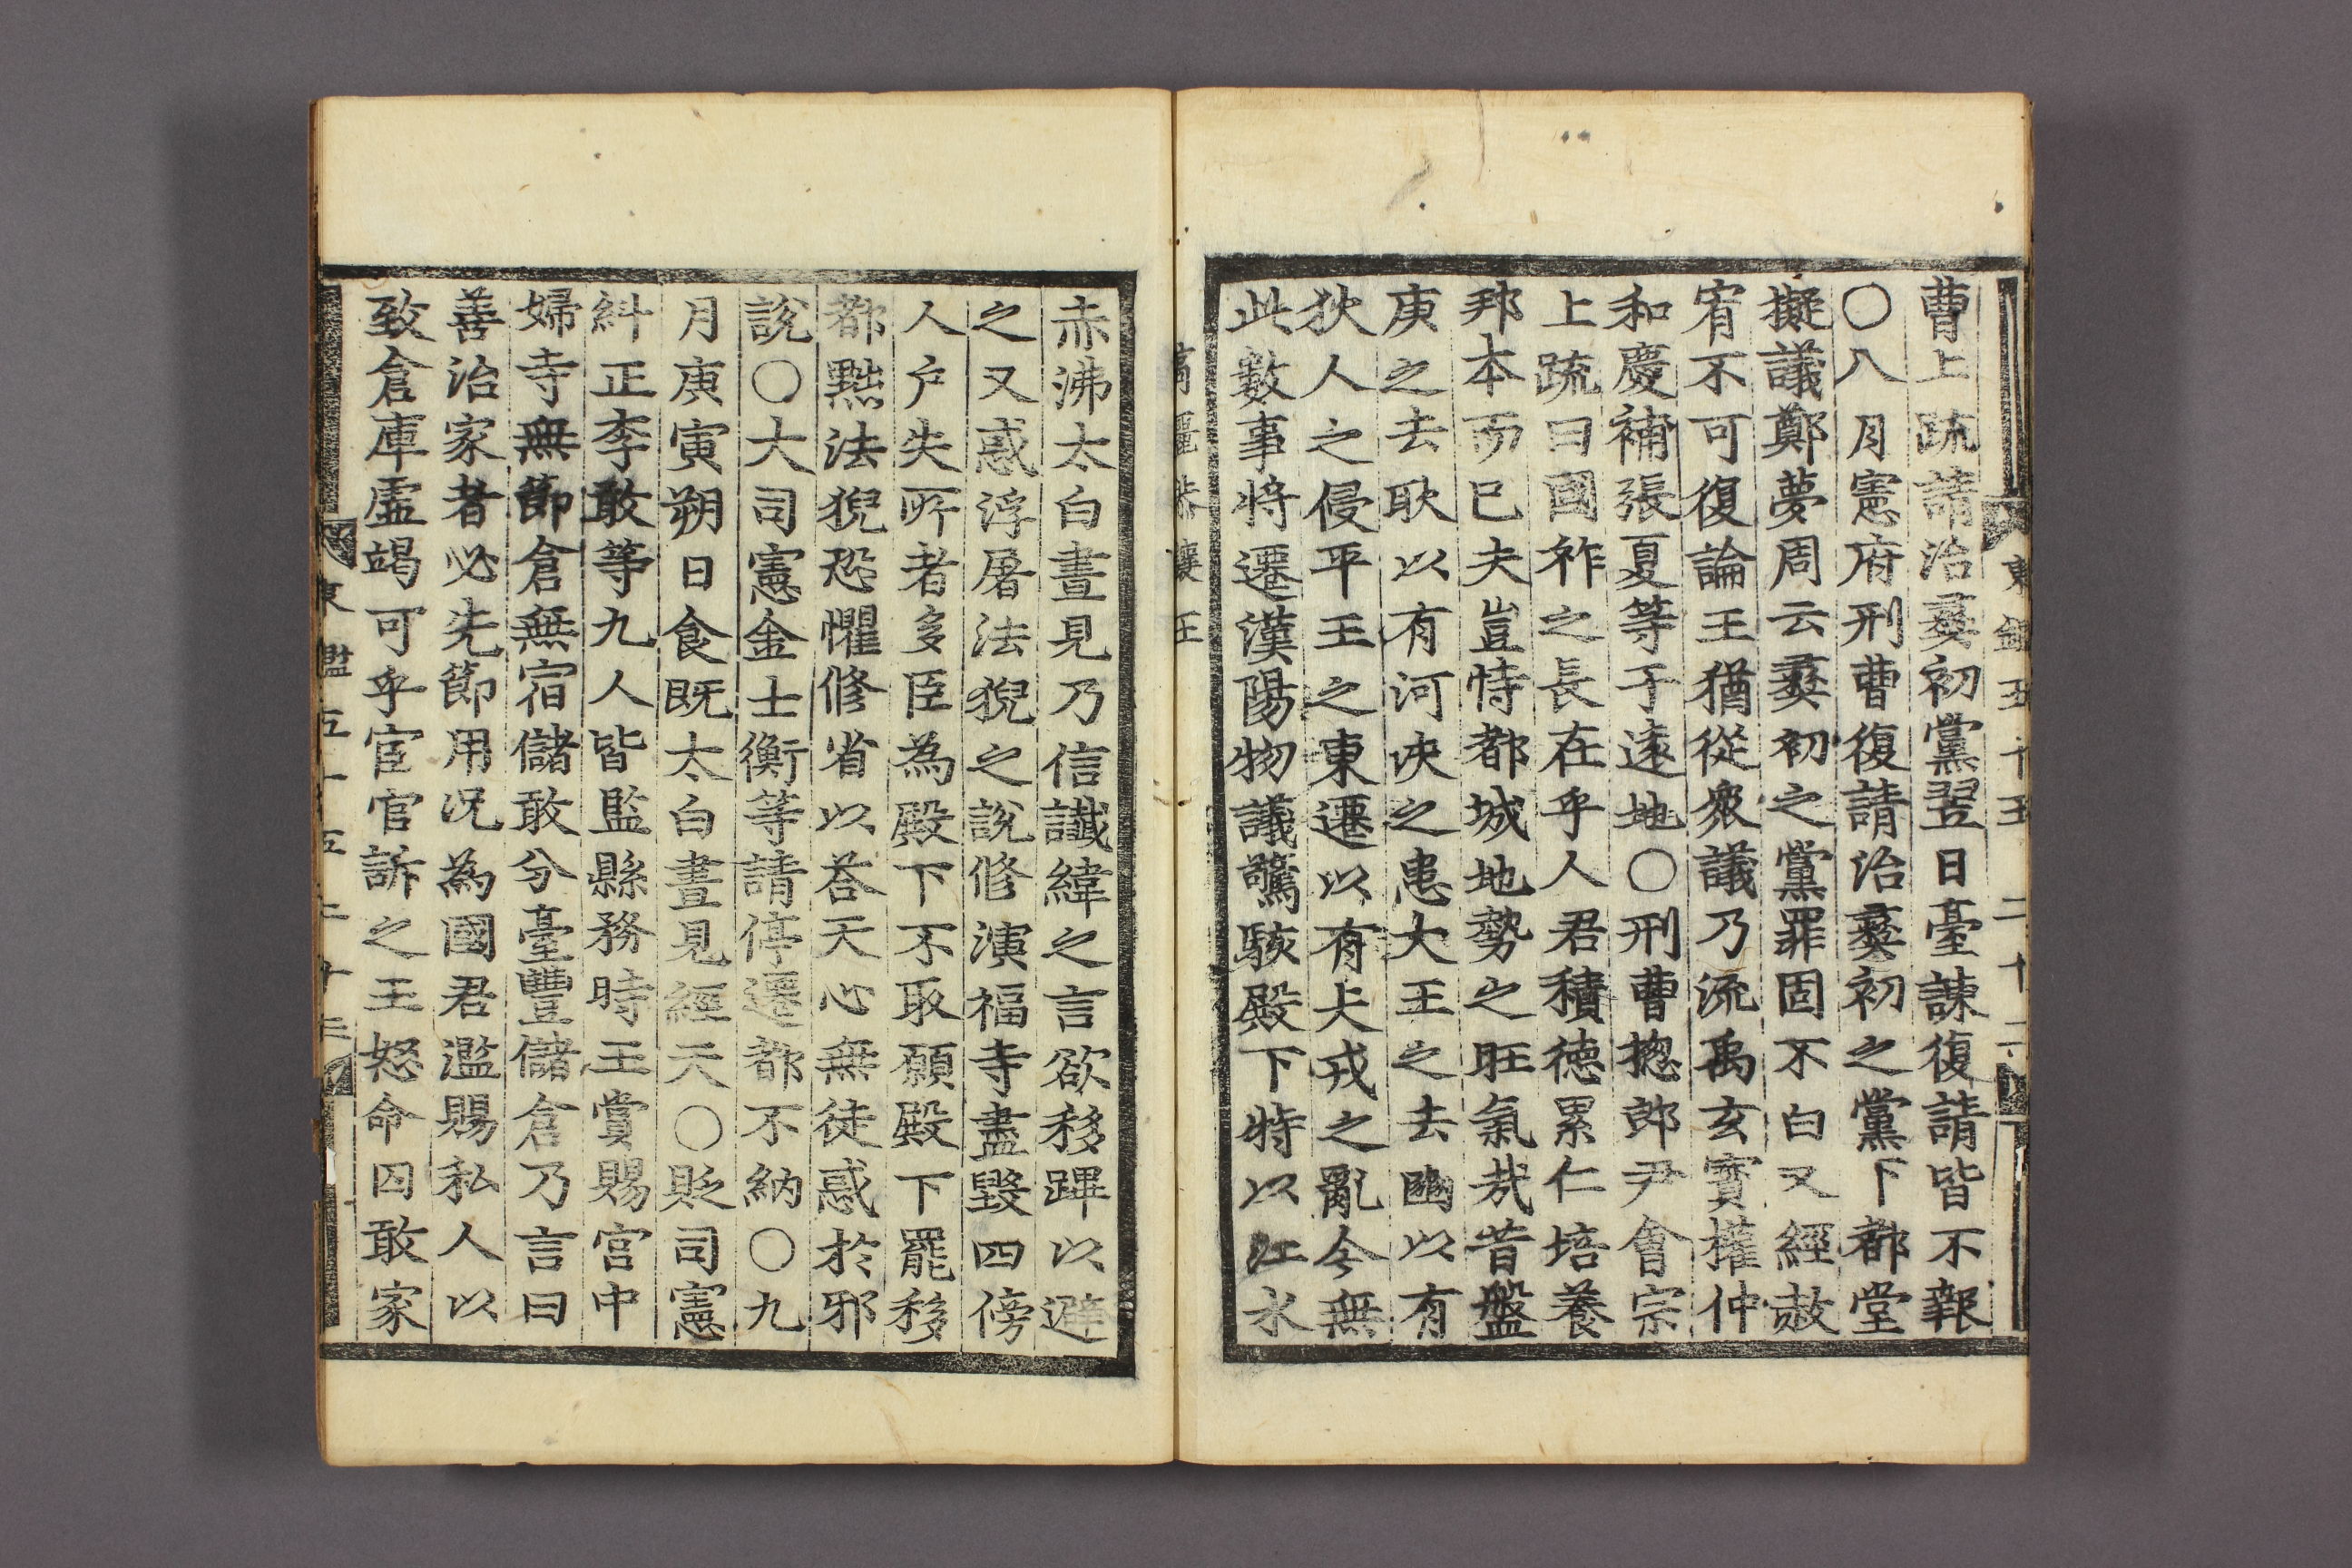 東鑑五十五 二十二
曹上疏請治彛初黨翌日臺諫復請皆不報
○八月憲府刑曹復請治彛初之黨下都堂
擬議鄭夢周云彛初之黨罪固不白又經赦
宥不可復論王猶從衆議乃流禹玄寶權仲
和慶補張夏等于遠地○刑曹摠郎尹會宗
上疏曰國祚之長在乎人君積德累仁培養
邦本而已夫豈恃都城地勢之旺氣哉昔盤
庚之去耿以有河决之患大王之去豳以有
狄人之侵平王之東遷以有犬戎之亂今無
此數事將遷漢陽物議驚駭殿下特以江水
高麗恭讓王
赤沸太白晝見乃信讖緯之言欲移蹕以避
之又惑浮屠法猊之說修演福寺盡毀四傍
人户失所者多臣為殿下不取願殿下罷移
都黜法猊恐懼修省以荅天心無徒惑於邪
說○大司憲金士衡等請停遷都不納○九
月庚寅朔日食既太白晝見經天○貶司憲
糾正李敢等九人皆監縣務時王賞賜宮中
婦寺無節倉無宿儲敢分臺豐儲倉乃言曰
善治家者必先節用况為國君濫賜私人以
致倉庫虛竭可乎宦官訴之王怒命囚敢家
東鑑五十五 二十三